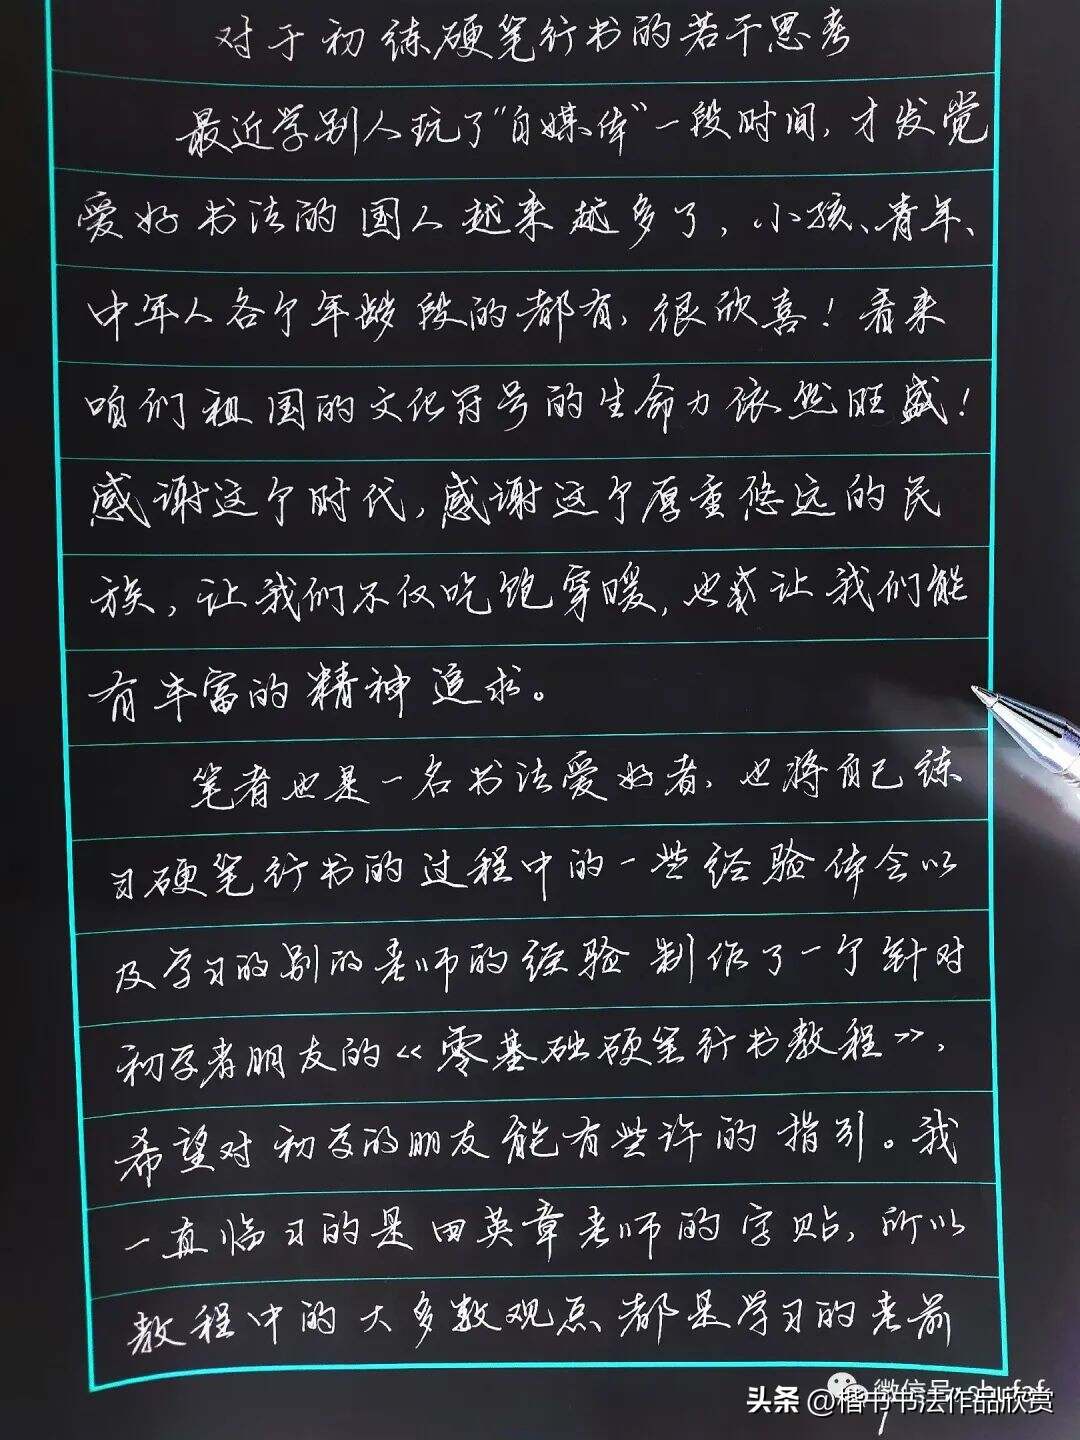 对于初练硬笔行书的若干思考
最近学别人玩了“自媒体”一段时间,才发觉
爱好书法的国人越来越多了,小孩、青年、
中年人各个年龄段的都有,很欣喜!看来
咱们祖国的文化符号的生命力依然旺盛!
感谢这个时代,感谢这个厚重悠远的民
族,让我们不仅吃饱穿暖,也或让我们能
有丰富的精神追求。
笔者也是一名书法爱好者,也将自己练
习硬笔行书的过程中的一些经验体会以
及学习的别的老师的经验制作了一个针对
初学者朋友的《零基础硬笔行书教程》,
希望对初学的朋友能有些许的指引。我
一直临习的是田英章老师的字贴,所以
教程中的大多数观点都是学习的老前
1
微信号:
头条@楷书书法作品欣赏